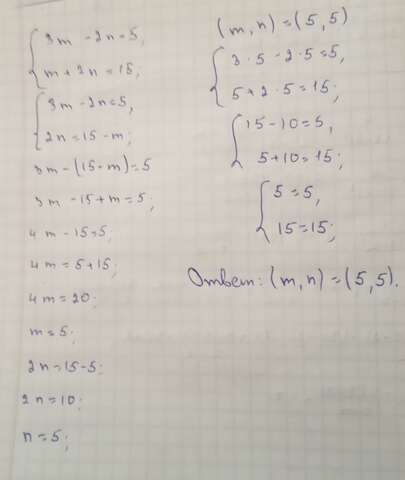 3m - 2n = 5,
m + 2n = 15;
3m - 2n = 5,
2n = 15 - m;
3m - (15 - m) = 5
3m - 15 + m = 5;
4m - 15 = 5;
4m = 5 + 15;
4m = 20;
m = 5;
2n = 15 - 5;
2n = 10;
n = 5;
(m, n) = (5, 5)
3 · 5 - 2 · 5 = 5,
5 + 2 · 5 = 15;
15 - 10 = 5,
5 + 10 = 15;
5 = 5,
15 = 15;
Ответ: (m, n) = (5, 5).